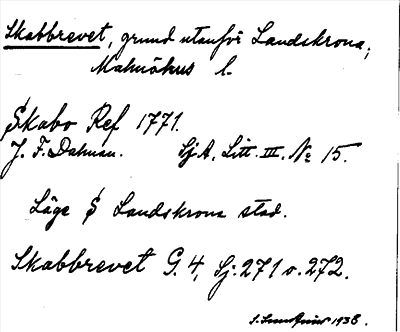 Skabbrevet, grund utanför Landskrona,
Malmöhus l.
Skabo Ref 1771.
J. F. Dalman. Sj.A. Litt. III. No 15.
Läge S Landskrona stad.
Skabbrevet G. 4, Sj: 271 o. 272.
1938.